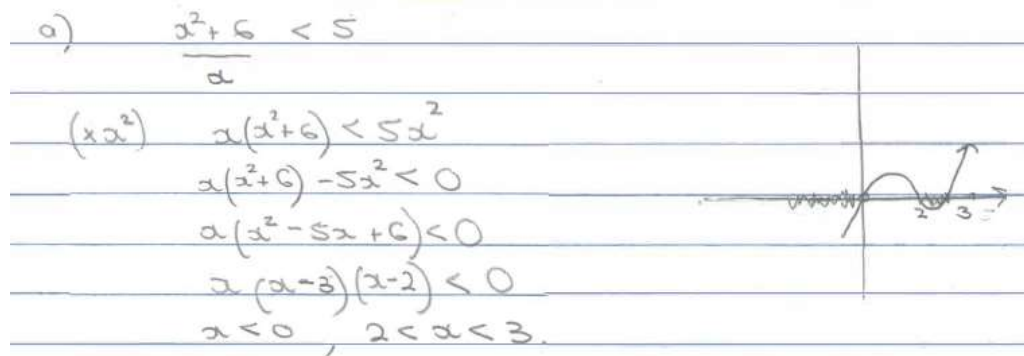 a) x² + 6 < 5
x
(×x²) x(x²+6) < 5x²
x(x²+6) - 5x² < 0
x(x² - 5x + 6) < 0
x(x-3)(x-2) < 0
x < 0 , 2 < x < 3.
2 3